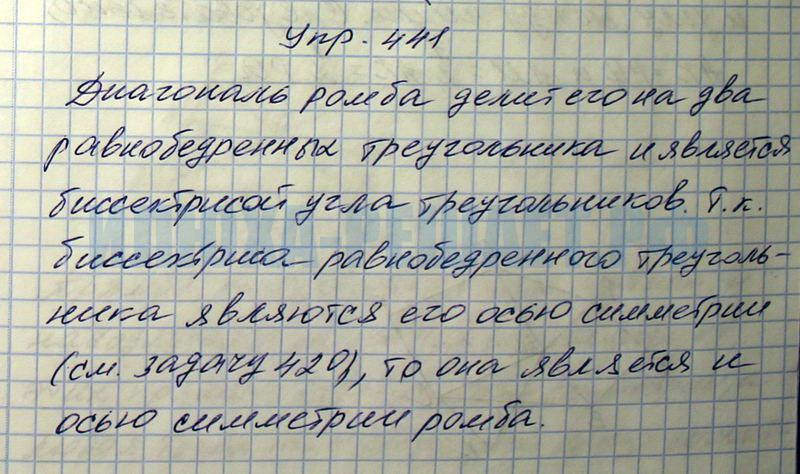 Упр. 441
Диагональ ромба делит его на два
равнобедренных треугольника и является
биссектрисой угла треугольников. Т.к.
биссектриса равнобедренного треуголь-
ника являются его осью симметрии
(см. задачу 420), то она является и
осью симметрии ромба.